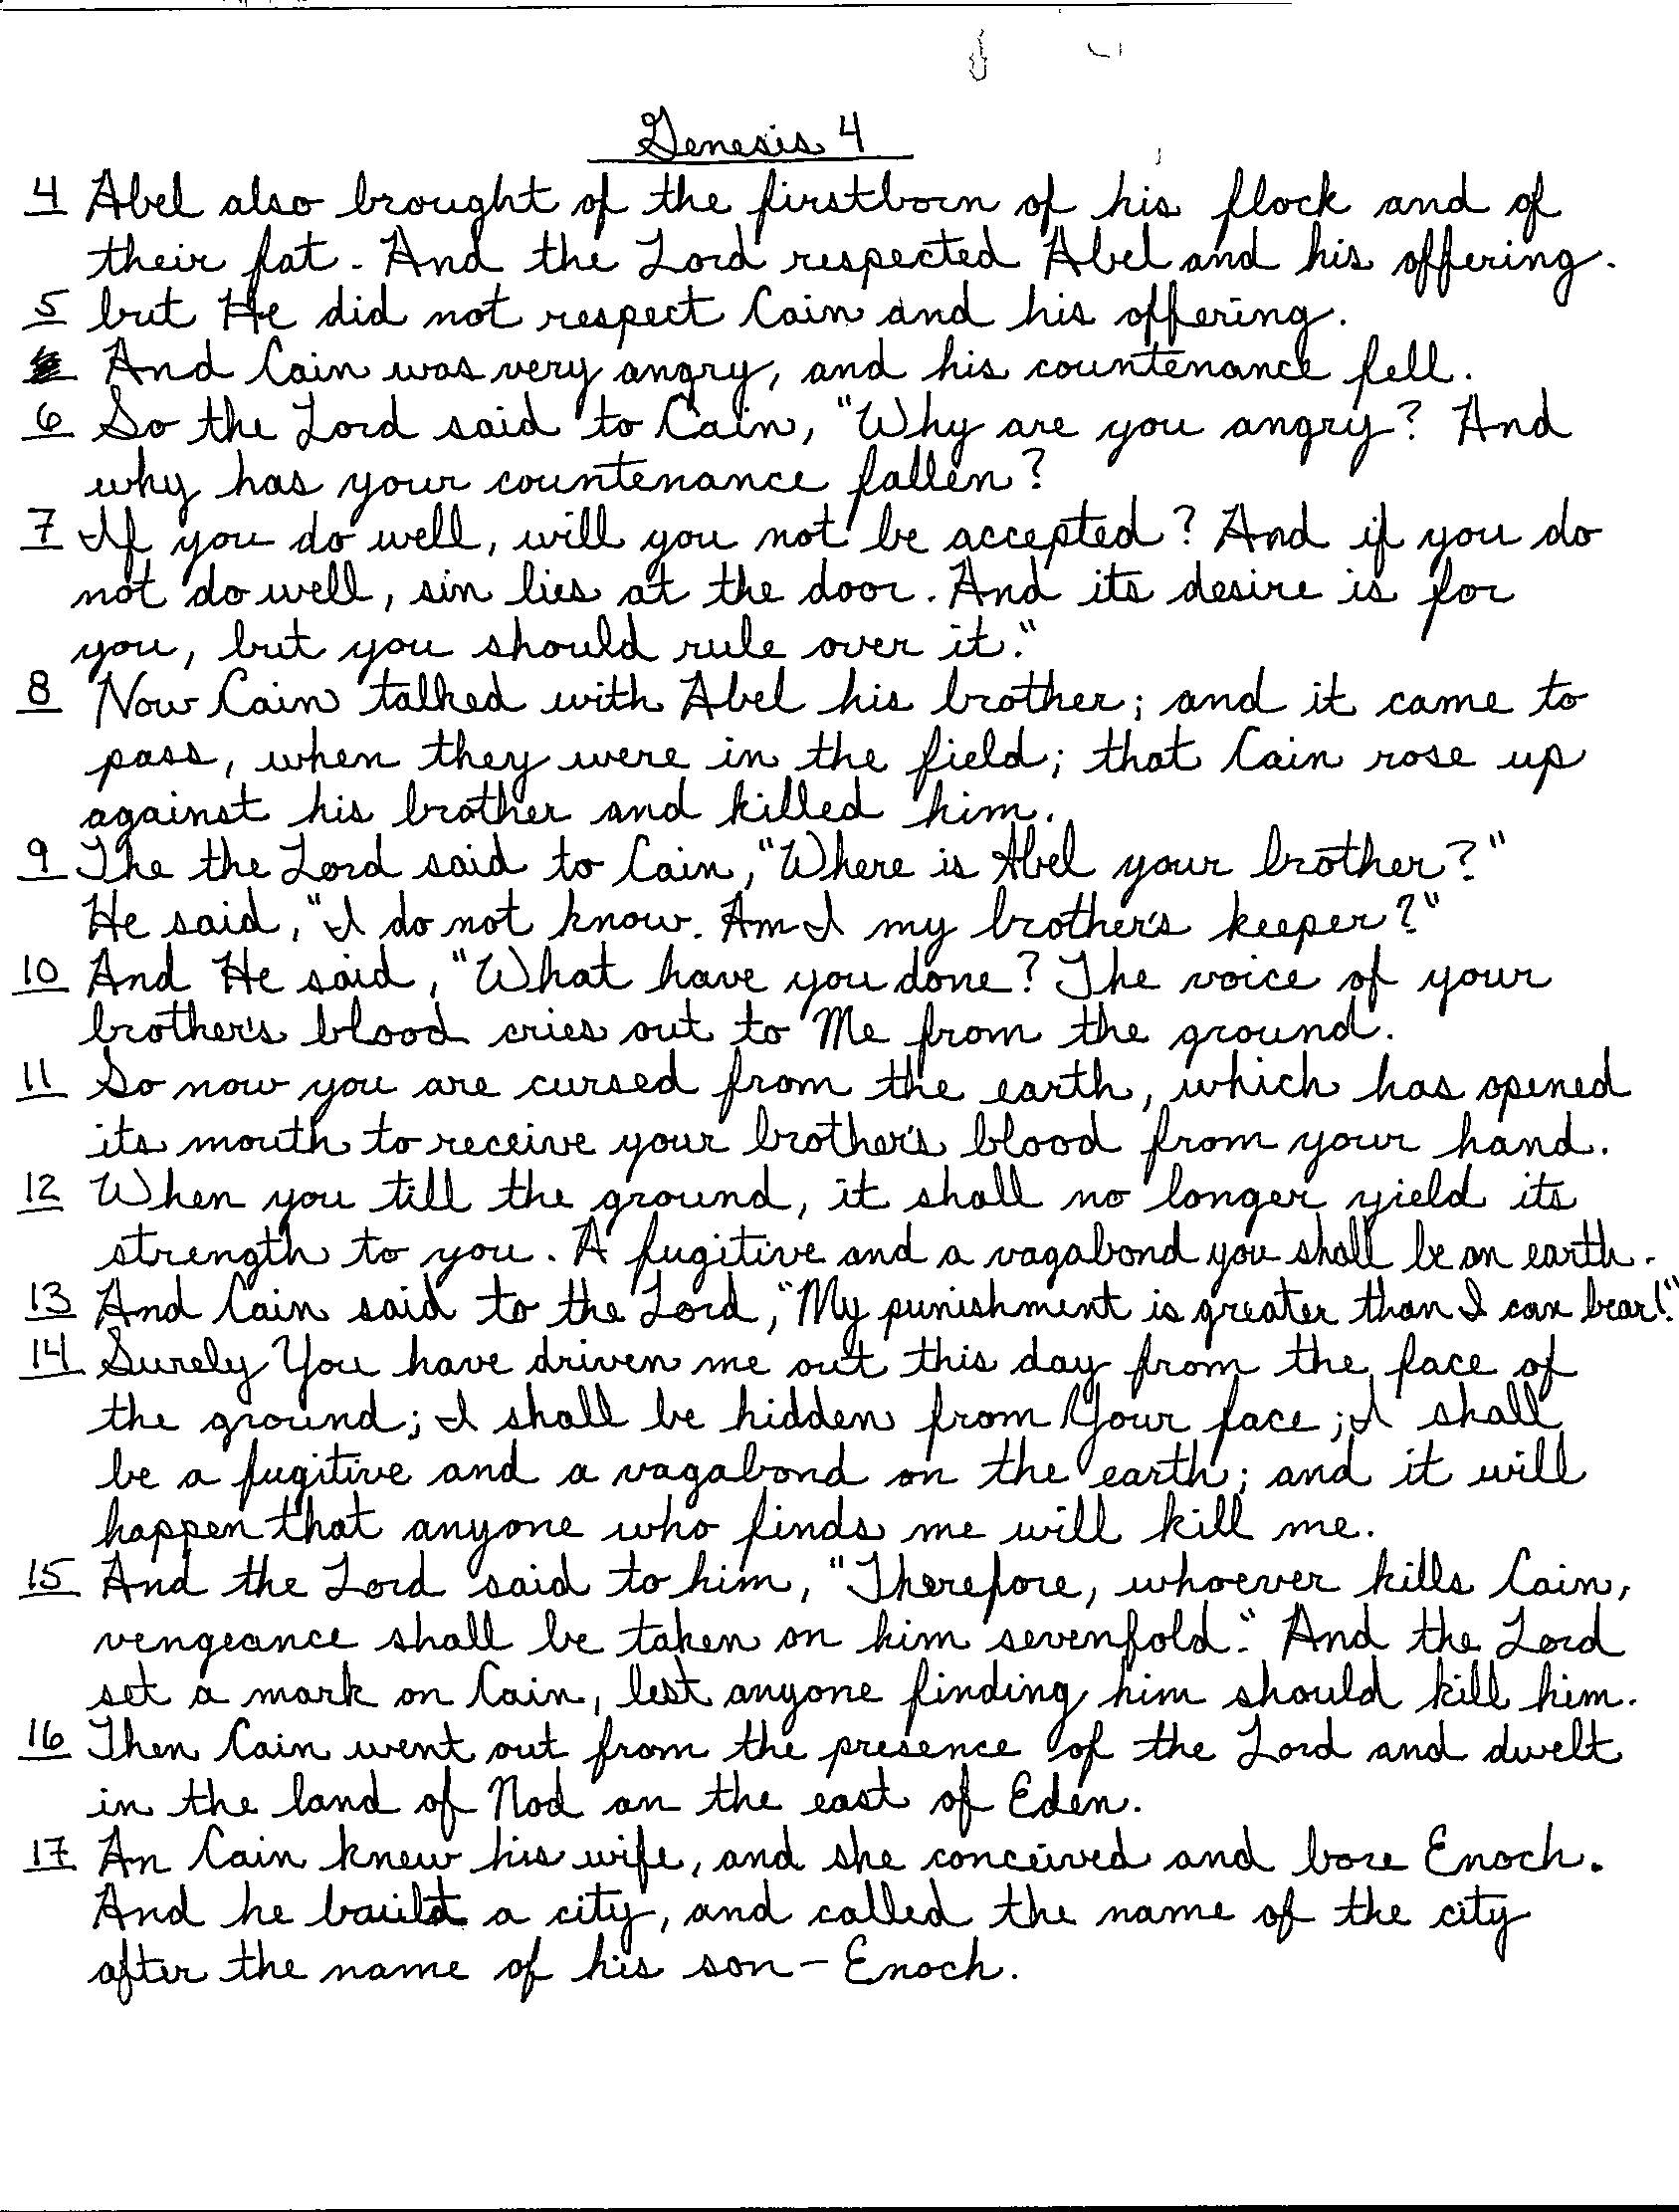 Genesis 4
4 Abel also brought of the firstborn of his flock and of
their fat. And the Lord respected Abel and his offering.
5 but He did not respect Cain and his offering.
And Cain was very angry, and his countenance fell.
6 So the Lord said to Cain, "Why are you angry? And
why has your countenance fallen?
7 If you do well, will you not be accepted? And if you do
not do well, sin lies at the door. And its desire is for
you, but you should rule over it."
8 Now Cain talked with Abel his brother; and it came to
pass, when they were in the field; that Cain rose up
against his brother and killed him.
9 The the Lord said to Cain, "Where is Abel your brother?"
He said, "I do not know. Am I my brother's keeper?"
10 And He said, "What have you done? The voice of your
brother's blood cries out to Me from the ground.
11 So now you are cursed from the earth, which has opened
its mouth to receive your brother's blood from your hand.
12 When you till the ground, it shall no longer yield its
strength to you. A fugitive and a vagabond you shall be on earth.
13 And Cain said to the Lord, "My punishment is greater than I can bear!"
14 Surely You have driven me out this day from the face of
the ground; I shall be hidden from Your face; I shall
be a fugitive and a vagabond on the earth; and it will
happen that anyone who finds me will kill me.
15 And the Lord said to him, "Therefore, whoever kills Cain,
vengeance shall be taken on him sevenfold." And the Lord
set a mark on Cain, lest anyone finding him should kill him.
16 Then Cain went out from the presence of the Lord and dwelt
in the land of Nod on the east of Eden.
17 An Cain knew his wife, and she conceived and bore Enoch.
And he built a city, and called the name of the city
after the name of his son - Enoch.